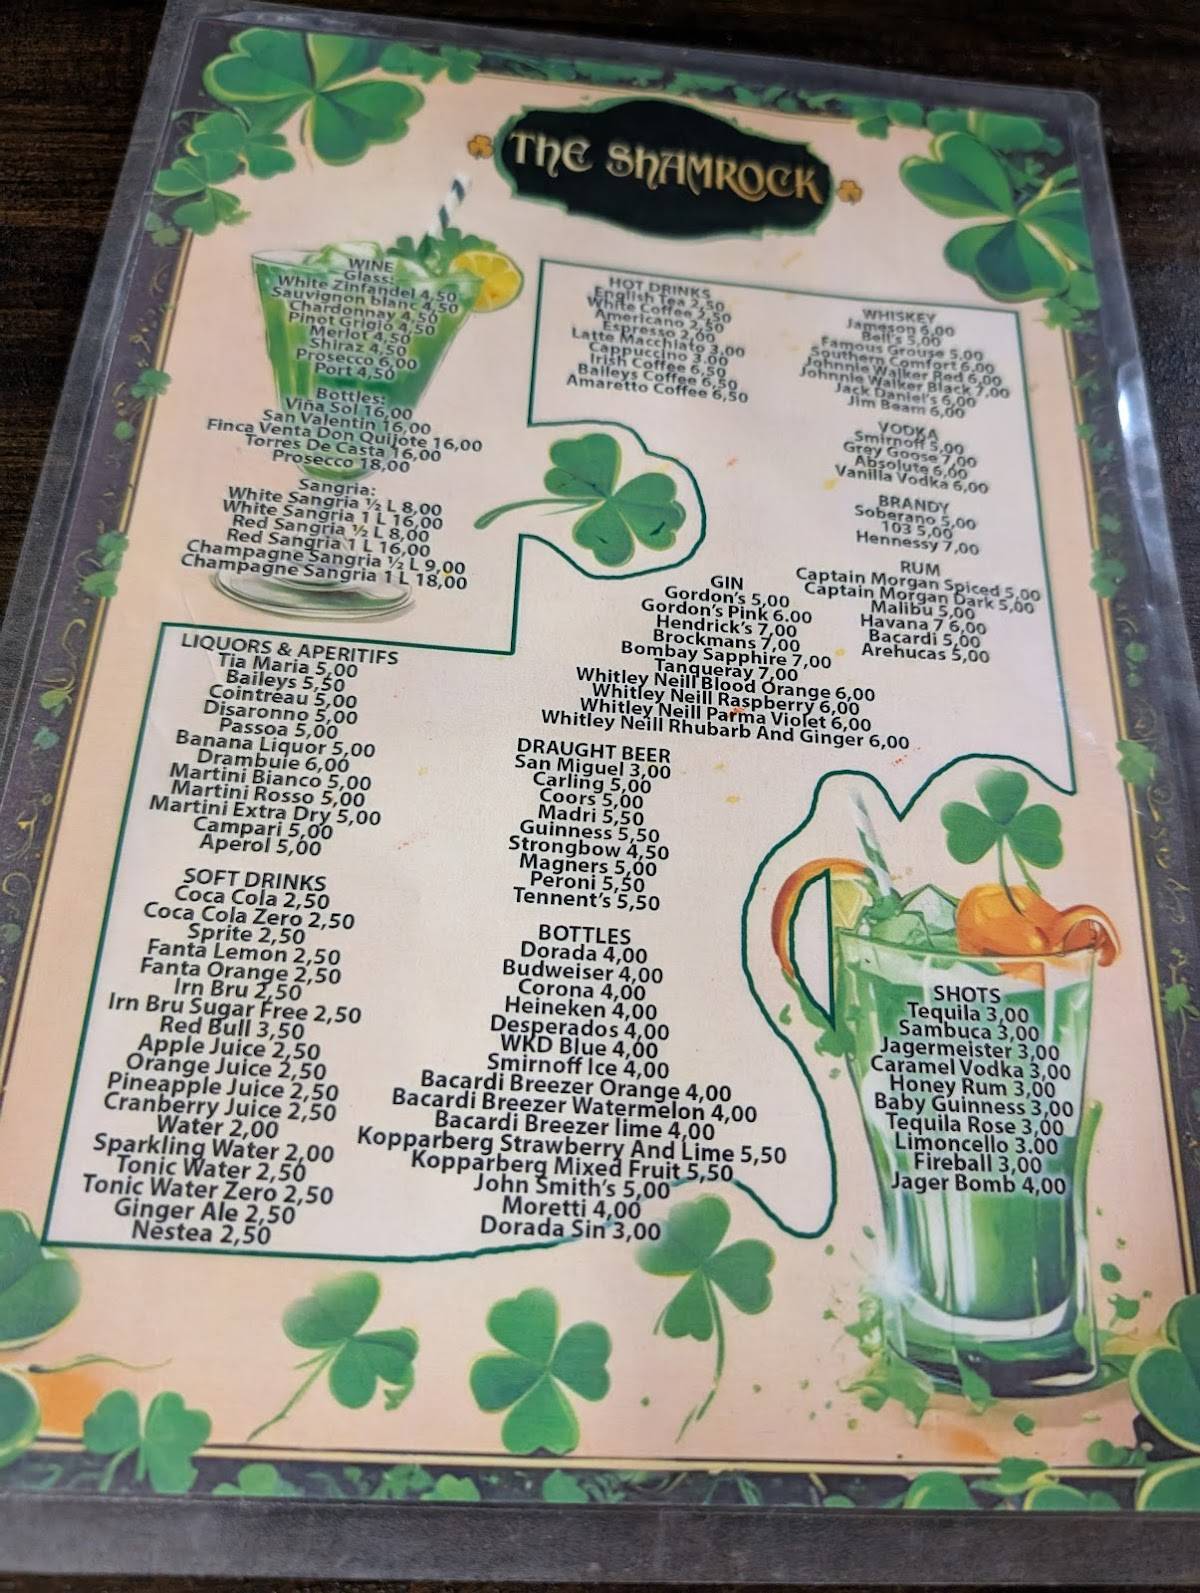 THE SHAMROCK
WINE
Glass:
White Zinfandel 4,50
Sauvignon blanc 4,50
Chardonnay 4,50
Pinot Grigio 4,50
Merlot 4,50
Shiraz 4,50
Prosecco 6,00
Port 4,50
Bottles:
Viña Sol 16,00
San Valentin 16,00
Finca Venta Don Quijote 16,00
Torres De Casta 16,00
Prosecco 18,00
Sangria:
White Sangria ½ L 8,00
White Sangria 1 L 16,00
Red Sangria ½ L 8,00
Red Sangria 1 L 16,00
Champagne Sangria ½ L 9,00
Champagne Sangria 1 L 18,00
HOT DRINKS
English Tea 2,50
White Coffee 2,50
Americano 2,50
Espresso 2,00
Latte Macchiato 3,00
Cappuccino 3.00
Irish Coffee 6,50
Baileys Coffee 6,50
Amaretto Coffee 6,50
WHISKEY
Jameson 6,00
Bell's 5,00
Famous Grouse 5,00
Southern Comfort 6,00
Johnnie Walker Red 6,00
Johnnie Walker Black 7,00
Jack Daniel's 6,00
Jim Beam 6,00
VODKA
Smirnoff 5,00
Grey Goose 7,00
Absolute 6,00
Vanilla Vodka 6,00
BRANDY
Soberano 5,00
103 5,00
Hennessy 7,00
RUM
Captain Morgan Spiced 5,00
Captain Morgan Dark 5,00
Malibu 5,00
Havana 7 6,00
Bacardi 5,00
Arehucas 5,00
GIN
Gordon's 5,00
Gordon's Pink 6.00
Hendrick's 7,00
Brockmans 7,00
Bombay Sapphire 7,00
Tanqueray 7,00
Whitley Neill Blood Orange 6,00
Whitley Neill Raspberry 6,00
Whitley Neill Parma Violet 6,00
Whitley Neill Rhubarb And Ginger 6,00
LIQUORS & APERITIFS
Tia Maria 5,00
Baileys 5,50
Cointreau 5,00
Disaronno 5,00
Passoa 5,00
Banana Liquor 5,00
Drambuie 6,00
Martini Bianco 5,00
Martini Rosso 5,00
Martini Extra Dry 5,00
Campari 5,00
Aperol 5,00
SOFT DRINKS
Coca Cola 2,50
Coca Cola Zero 2,50
Sprite 2,50
Fanta Lemon 2,50
Fanta Orange 2,50
Irn Bru 2,50
Irn Bru Sugar Free 2,50
Red Bull 3,50
Apple Juice 2,50
Orange Juice 2,50
Pineapple Juice 2,50
Cranberry Juice 2,50
Water 2,00
Sparkling Water 2,00
Tonic Water 2,50
Tonic Water Zero 2,50
Ginger Ale 2,50
Nestea 2,50
DRAUGHT BEER
San Miguel 3,00
Carling 5,00
Coors 5,00
Madri 5,50
Guinness 5,50
Strongbow 4,50
Magners 5,00
Peroni 5,50
Tennent's 5,50
BOTTLES
Dorada 4,00
Budweiser 4,00
Corona 4,00
Heineken 4,00
Desperados 4,00
WKD Blue 4,00
Smirnoff Ice 4,00
Bacardi Breezer Orange 4,00
Bacardi Breezer Watermelon 4,00
Bacardi Breezer lime 4,00
Kopparberg Strawberry And Lime 5,50
Kopparberg Mixed Fruit 5,50
John Smith's 5,00
Moretti 4,00
Dorada Sin 3,00
SHOTS
Tequila 3,00
Sambuca 3,00
Jagermeister 3,00
Caramel Vodka 3,00
Honey Rum 3,00
Baby Guinness 3,00
Tequila Rose 3,00
Limoncello 3.00
Fireball 3,00
Jager Bomb 4,00